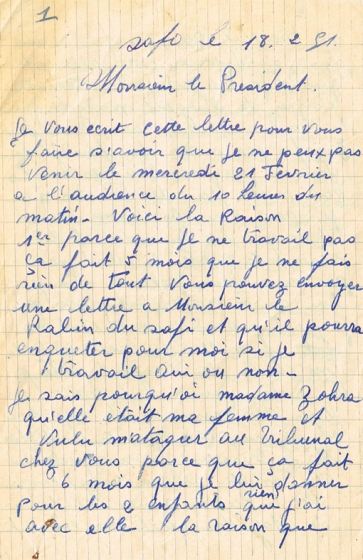 1
safi le 18.2.51.
Monsieur le President.
Je vous ecrit cette lettre pour vous
faire s'avoir que je ne peux pas
venir le mercredi 21 Fevrier
a l'audience du 10 heures du
matin - Voici la Raison
1er parce que je ne travail pas
ça fait 5 mois que je ne fais
rien de tout Vous pouvez envoyer
une lettre a Monsieur le
Rabin du safi et qu'il pourra
enqueter pour moi si je
travail oui ou non -
Je sais pourqu'oi madame Zohra
qu'elle etait ma femme et
vulu mataquer au Tribunal
chez vous parce que ça fait
6 mois que je lui donner
rien
pour les 2 enfants que j'ai
avec elle la raison que